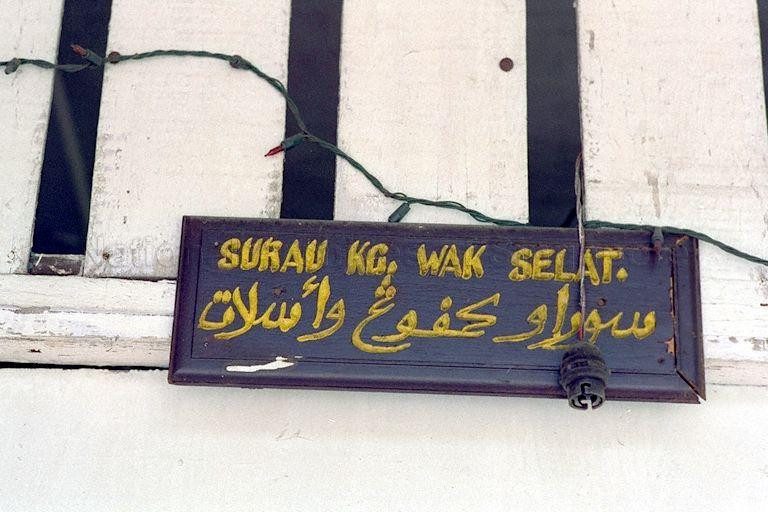 SURAU KG. WAK SELAT.
سوراو کمڤوڠ وأسلات